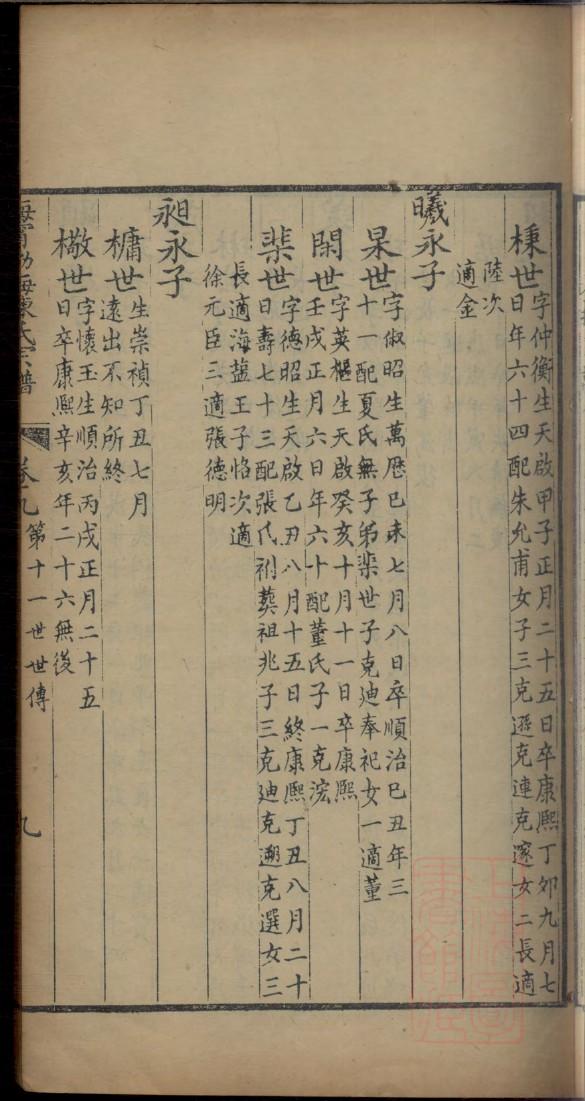 棅世字仲衡生天啟甲子正月二十五日卒康熙丁卯九月七
日年六十四配朱允甫女子三克遜克連克邃女二長適
陸次
適金
曦永子
杲世字俶昭生萬歷己未七月八日卒順治己丑年三
十一配夏氏無子弟棐世子克迪奉祀女一適董
閑世字英樞生天啟癸亥十月十一日卒康熙
壬戌正月六日年六十配董氏子一克浤
棐世字德昭生天啟乙丑八月十五日終康熙丁丑八月二十
日壽七十三配張氏祔葬祖兆子三克迪克遡克選女三
長適海盐王子恪次適
徐元臣三適張德明
昶永子
槦世生崇禎丁丑七月
遠出不知所終
橵世字懷玉生順治丙戌正月二十五
日卒康熙辛亥年二十六無後
海寧渤海陳氏宗譜 卷九 第十一世世傳 九